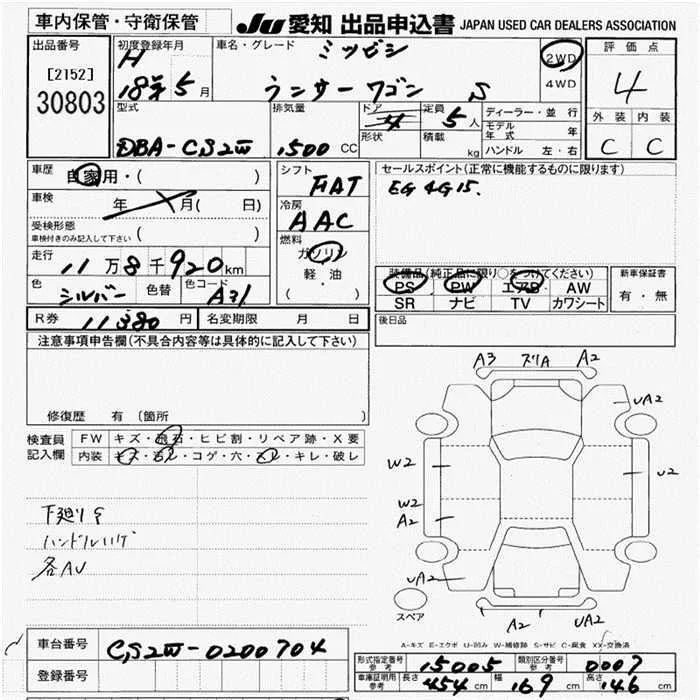 車内保管・守衛保管
JU 愛知 出品申込書 JAPAN USED CAR DEALERS ASSOCIATION
出品番号
[2152]
30803
初度登録年月
H
18年 5月
車名・グレード
ミツビシ
ランサーワゴン S
2WD
4WD
評価点
4
外装 内装
C C
型式
DBA-CS2W
排気量
1500 CC
ドア
4
形状
定員
5人
積載
kg
ディーラー・並行
モデル年式 年
ハンドル 左・右
車歴 自家用・( )
車検 年 月( 日)
受検形態
車検付きのみ記入して下さい ( )
走行
11万8千920km
色 シルバー 色替 色コード A31
シフト
FAT
冷房
AAC
燃料
ガソリン
軽・油
( ・ )
セールスポイント(正常に機能するものに限ります)
EG 4G15.
装備品(純正品に限り○をつけてください)
PS PW エアB AW
SR ナビ TV カワシート
新車保証書
有・無
R券 11380円 名変期限 月 日
後日品
注意事項申告欄(不具合内容等は具体的に記入して下さい)
修復歴 有 (箇所 )
検査員記入欄
FW キズ・飛石・ヒビ割・リペア跡・X要
内装 キズ・汚レ・コゲ・穴・スレ・キレ・破レ
下廻りS
各AU
A3 スリA A2
UA2
W2
U2
W2
A2
UA2
A2
UA2
スペア
A-キズ E-エクボ U-凹み W-補修跡 S-サビ C-腐食 XX-交換済
車台番号 CS2W-0200704
登録番号
形式指定番号 参考 15005 類別区分番号 参考 0007
車庫証明用 参考 長さ 454cm 幅 169cm 高さ 146cm